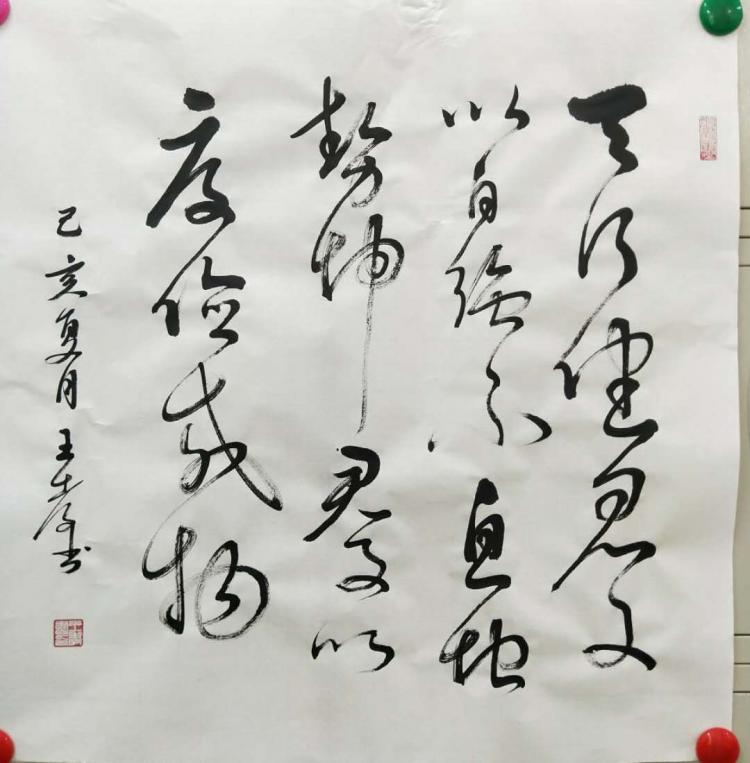 天行健君子
以自强不息地
势坤君子以
厚德载物
己亥夏月 王书